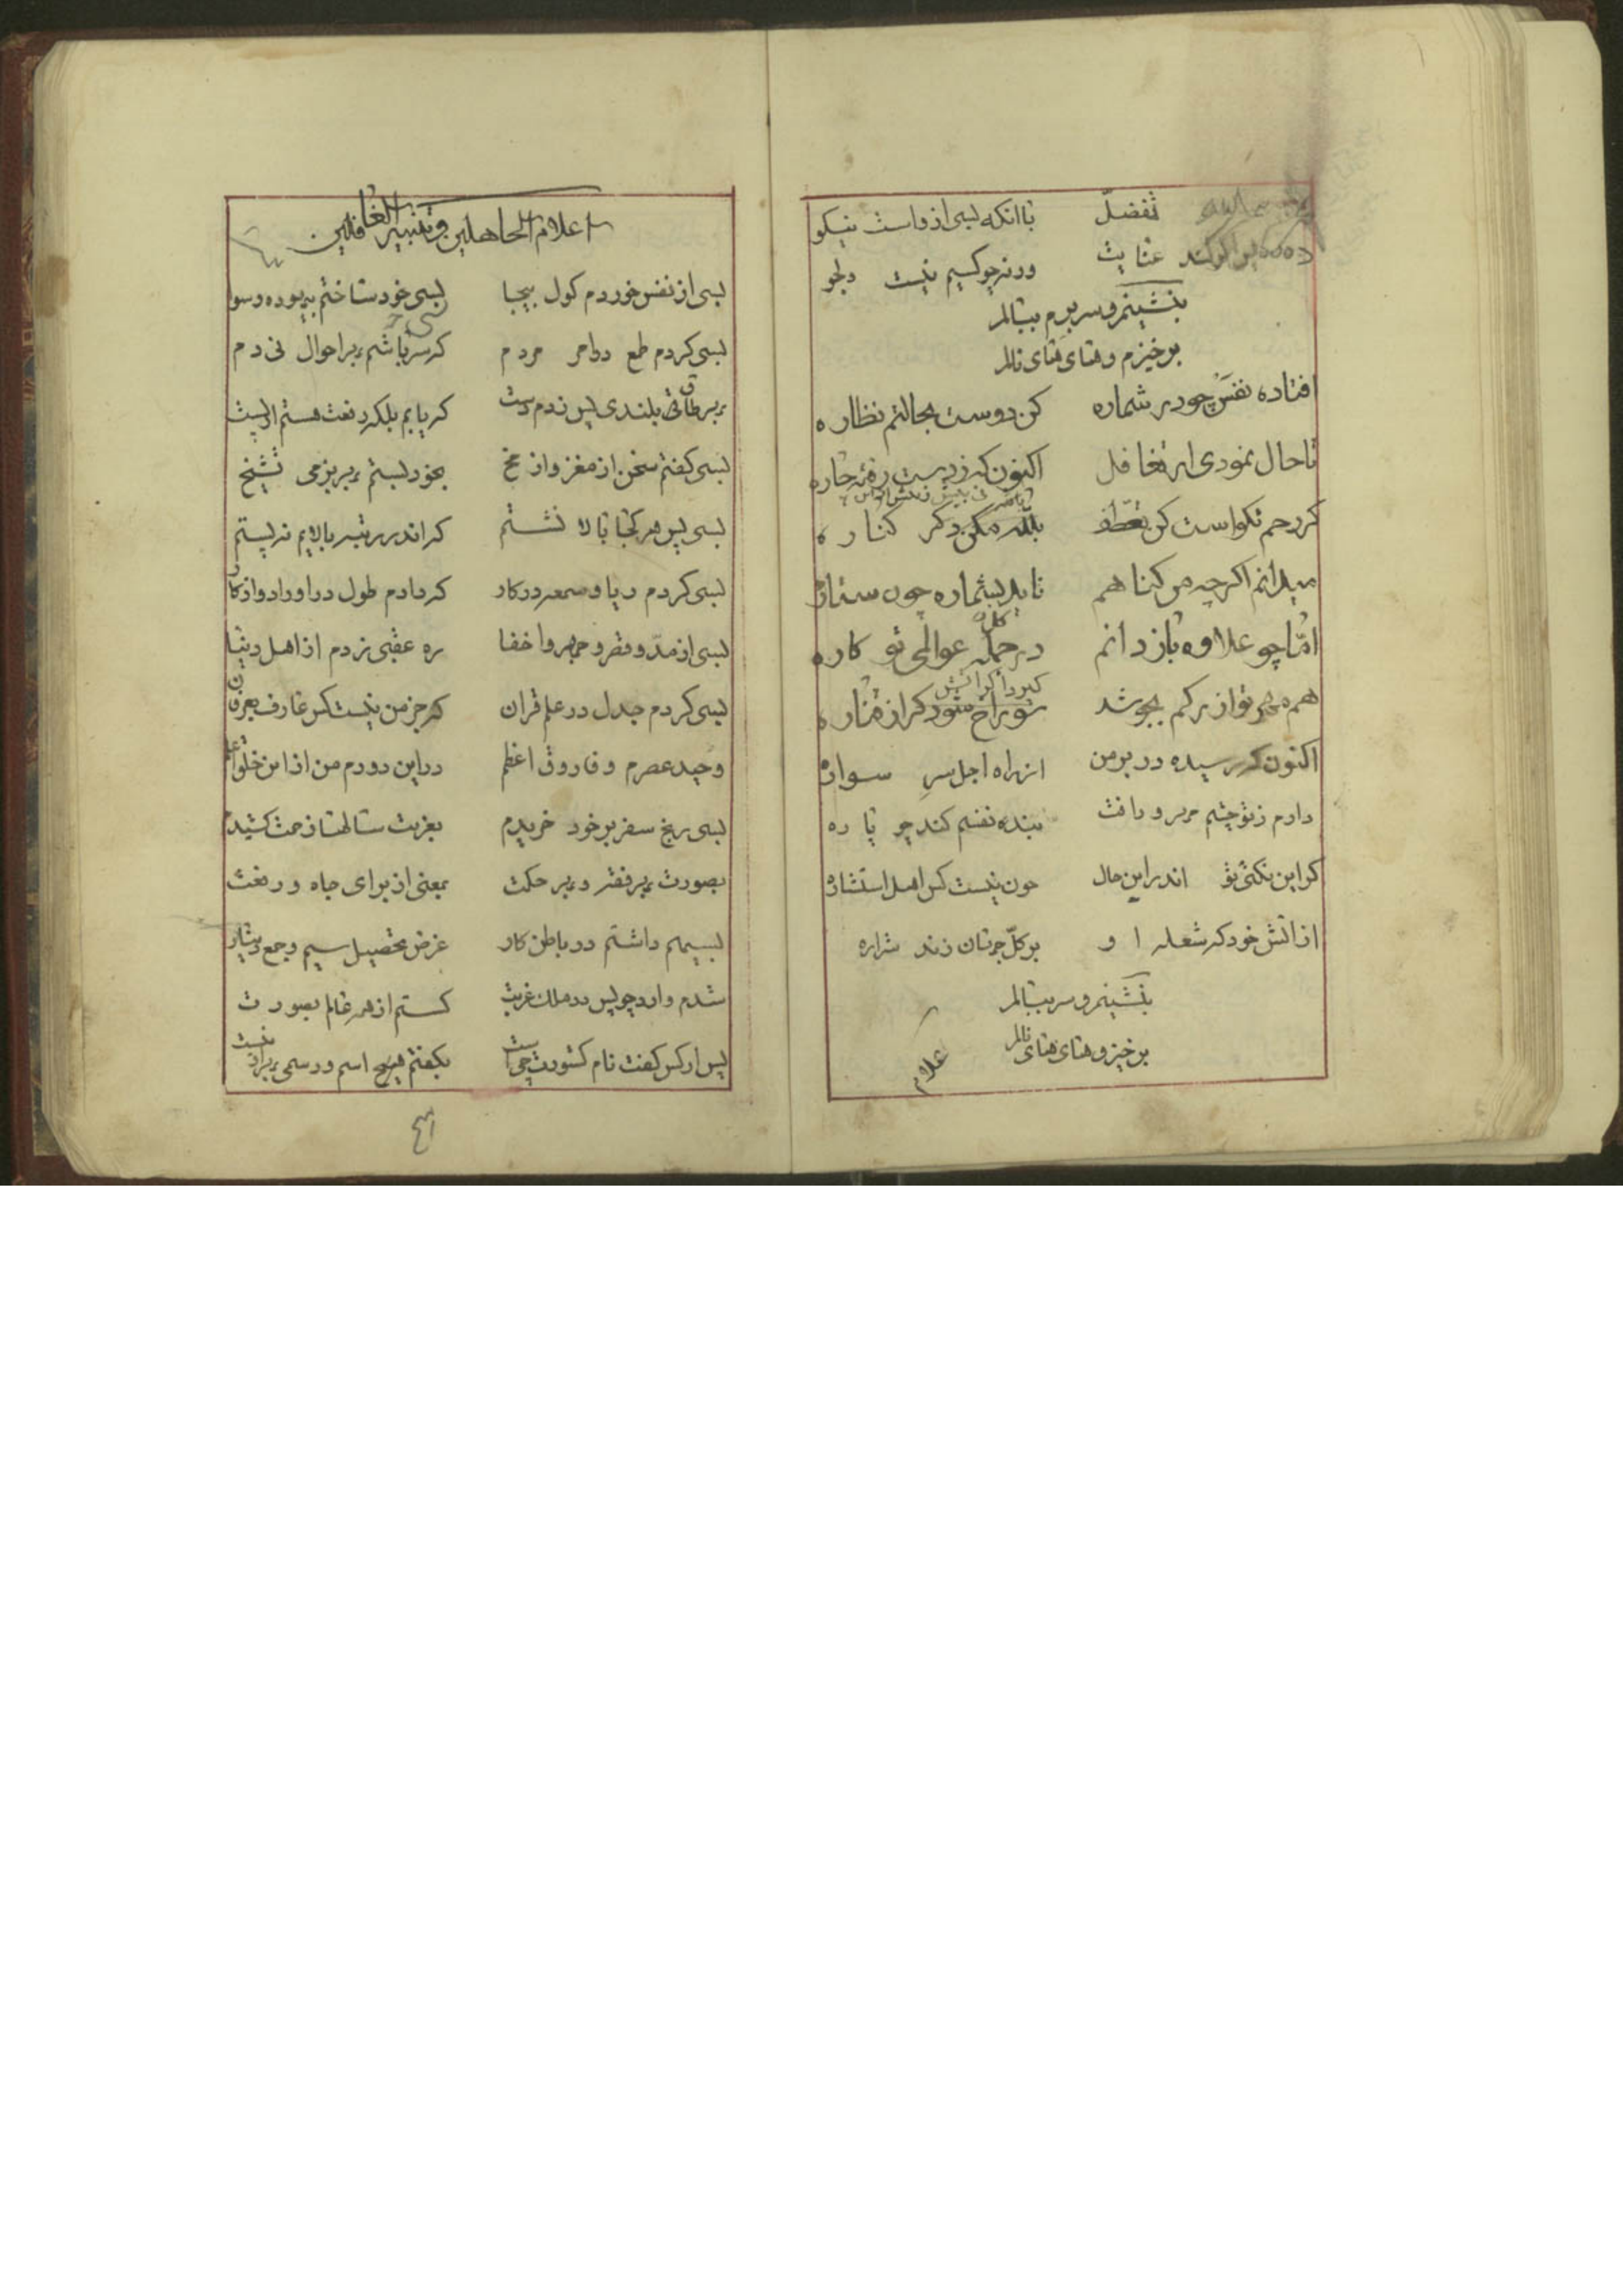 تفضل با انکه بسی از و است نیکو
کند عنایت ورنه چو کسیم نیست دلجو
بنشینم و سر برم ببالم
برخیزم و های های نالم
افتاده نفس چو در شماره کن دوست بحالتم نظاره
تا حال نمودی ار تغافل اکنون که ز دست رفته چاره
کر رحم نکو است کن تعطف بالله مکن دکر کناره
میدانم اکرچه من کناهم ناید بشماره چون ستاره
امّا چو علاوه باز دانم در جمله عوالمی تو کاره
کل
هم مهر تو از برکم بجوشد سوراخ شود کر از مناره
اکنون که رسیده در بر من از راه اجل سر سواره
دارم ز تو چشم مهر و رافت بیند نفسم کند چو پاره
کر این نکنی تو اندر این حال چون نیست کس اهل استشاره
از اتش خود که شعله او بر کلّ جهان زند شراره
بنشینم و سر ببالم
برخیز و های های نالم
اعلام الجاهلین و تنبیه الغافلین
بسی از نفس خوردم کول بیجا بسی خود ساختم بیهوده رسوا
بسی کردم طمع در امر مردم که سر باشم بر احوال نی دم
بر سر طاق بلندی پس زدم دست که یابم بلکه رفعت هستم ار پست
بسی کفتم سخن از مغز و از مخ بخود بستم تشیخ
بسی پس هر کجا بالا نشستم که اندر رتبه بالایم نه پستم
بسی کردم ریا و سمعه در کار که دادم طول در اوراد و اذکار
بسی از مدّ و قصر و جهر و اخفا ره عقبی زدم از اهل دنیا
بسی کردم جدل در علم قران که جز من نیست کس عارف بعرفان
وحید عصرم و فاروق اعظم در این دورم من از این خلق اعلم
بسی رنج سفر بر خود خریدم بغربت سالها زحمت کشیدم
بصورت بهر فقر و بهر حکمت بمعنی از برای جاه و رفعت
بسی هم داشتم در باطن کار غرض تحصیل سیم و جمع دینار
شدم وارد چو پس در ملک غربت کسستم از هر عالم بصورت
پس ار کس کفت نام کشورت چیست بکفتم هیچ اسم و رسمی نیست